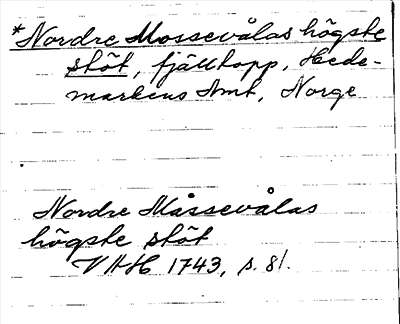 *Nordre Mossevålas högste
stöt, fjälltopp, Hede-
markens Amt, Norge
Nordre Måssevålas
högste stöt
VHH 1743, s. 81.